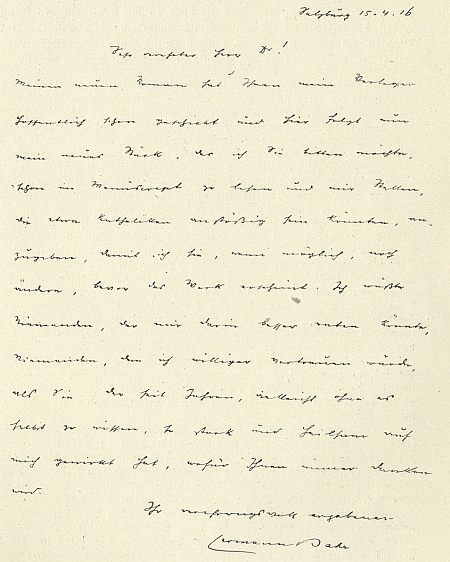 Salzburg 15.4.16
Sehr verehrter Herr Dr!
Meinen neuen Roman hat Ihnen mein Verleger
hoffentlich schon geschickt und hier folgt nun
mein neues Stück, das ich Sie bitten möchte,
schon im Manuscript zu lesen und mir Stellen,
die etwa Katholiken anstößig sein könnten, an-
zugeben, damit ich sie, wenn möglich, noch
ändere, bevor das Werk erscheint. Ich wüßte
Niemanden, der mir darin besser raten könnte,
Niemanden, dem ich williger vertrauen würde,
als Sie der seit Jahren, vielleicht ohne es
selbst zu wissen, so stark und heilsam auf
mich gewirkt hat, wofür Ihnen immer danken
wird.
Ihr verehrungsvoll ergebener
Hermann Bahr